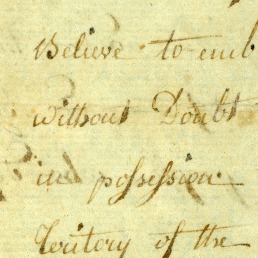 Believe to emb
without Doubt
in possession
Teritory of the